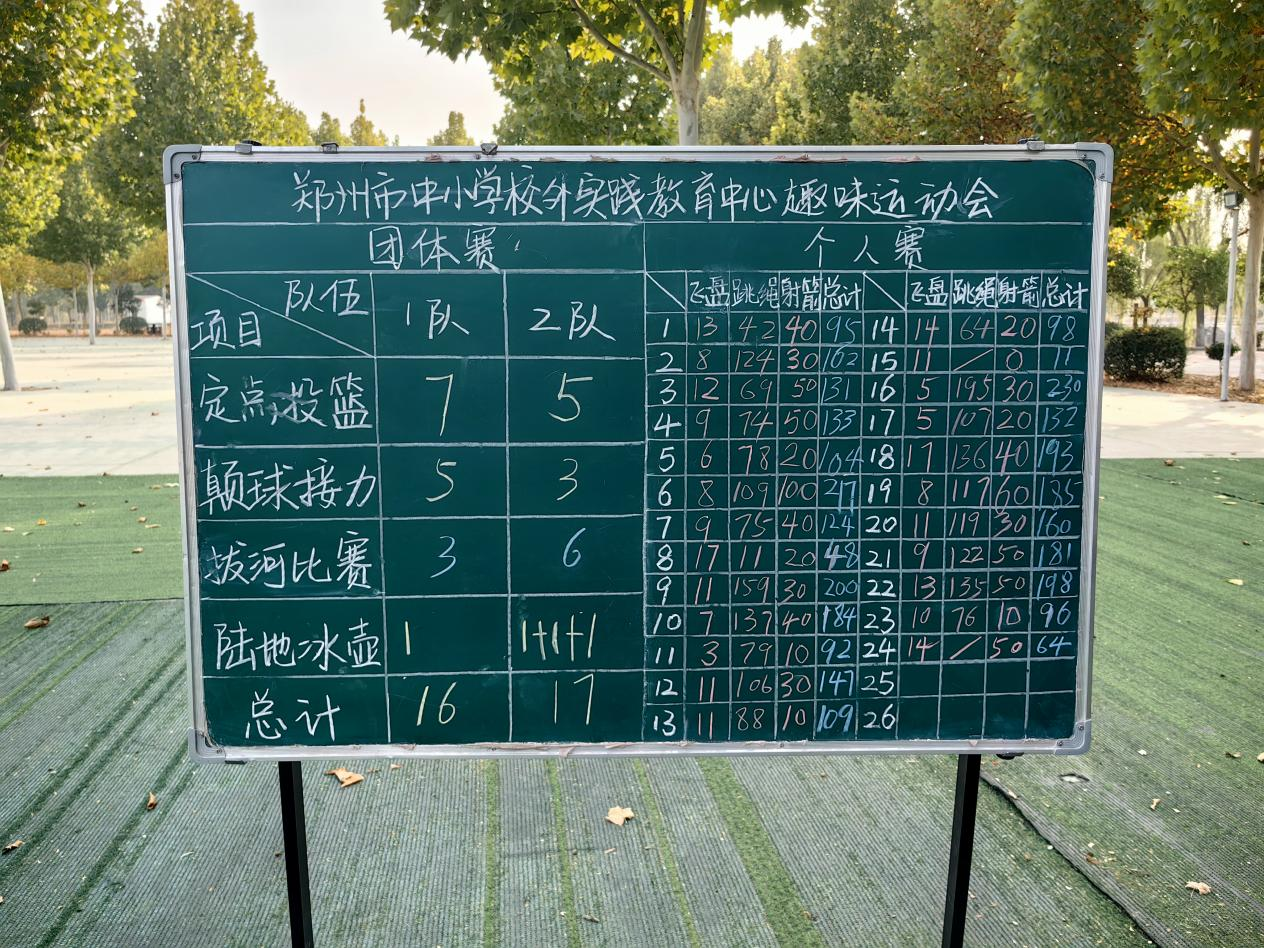 郑州市中小学校外实践教育中心趣味运动会
团体赛 个人赛
队伍 项目 1队 2队 飞盘 跳绳 射箭 总计 飞盘 跳绳 射箭 总计
定点投篮 7 5
颠球接力 5 3
拔河比赛 3 6
陆地冰壶 1 1+1+1
总计 16 17
1 13 42 40 95 14 14 64 20 98
2 8 124 30 162 15 11 / 0 11
3 12 69 50 131 16 5 195 30 230
4 9 74 50 133 17 5 107 20 132
5 6 78 20 104 18 17 136 40 193
6 8 109 100 217 19 8 117 60 185
7 9 75 40 124 20 11 119 30 160
8 17 11 20 48 21 9 122 50 181
9 11 159 30 200 22 13 135 50 198
10 7 137 40 184 23 10 76 10 96
11 3 79 10 92 24 14 / 50 64
12 11 106 30 147 25
13 11 88 10 109 26